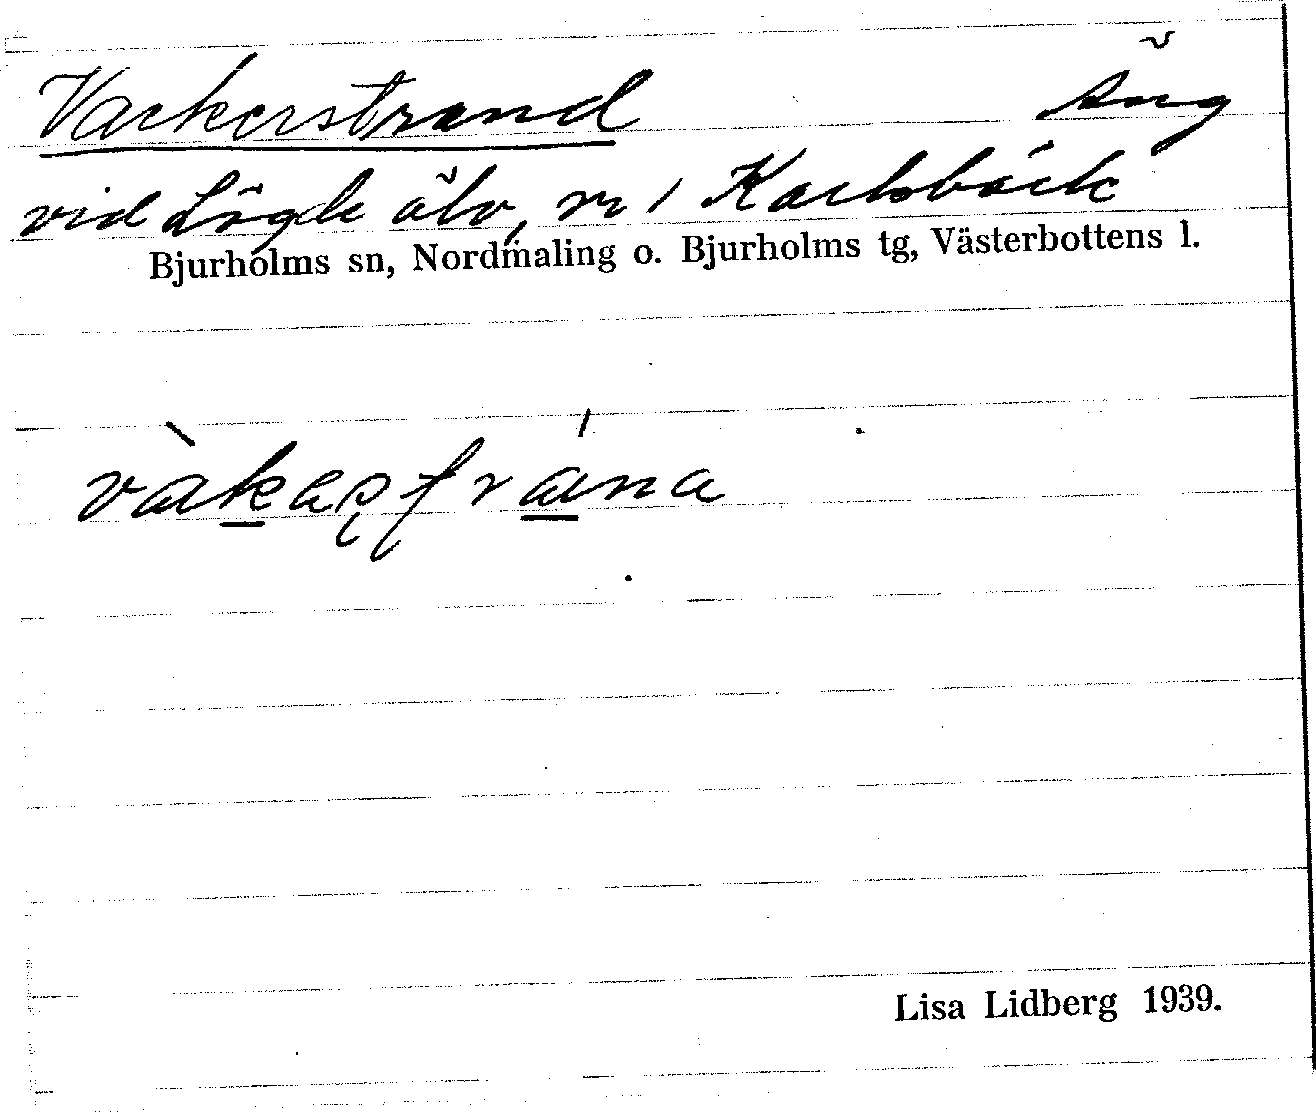 Vackerstrand äng
vid Lögde älv, nr 1 Karlsbäck
Bjurholms sn, Nordmaling o. Bjurholms tg, Västerbottens l.
Lisa Lidberg 1939.